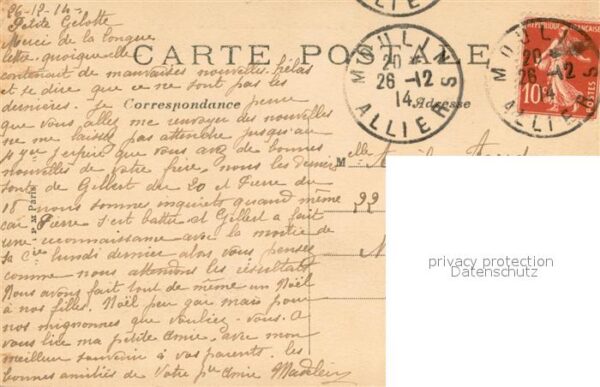 26-12-14
Petite Gelotte
Merci de la longue
lettre, quoique elle
contenait de mauvaises nouvelles hélas
et se dire que ce ne sont pas les
dernières. Je pense
que vous allez me renvoyer des nouvelles
ne me laissez pas attendre jusqu'au
j'espère que vous avez de bonnes
nouvelles de votre frère, nous les dernières
sont de Gilbert du 20 et Pierre du
18 nous sommes inquiets quand même
car Pierre s'est battu et Gilbert a fait
une reconnaissance avec la moitié de
sa Cie lundi dernier alors vous pensez
comme nous attendons les résultats
Nous avons fait tout de même un Noël
à nos filles. Noël peu gai mais pour
nos mignonnes que vouliez-vous. À
vous lire ma petite amie, avec mon
meilleur souvenir à vos parents. les
bonnes amitiés de votre pte amie Madeleine
CARTE POSTALE
Correspondance
Adresse
P M Paris
MOULINS
20
26-12
14
ALLIER
MOULINS
20
26-12
14
ALLIER
REPUBLIQUE FRANÇAISE
10c
POSTES
Melle
99
privacy protection
Datenschutz